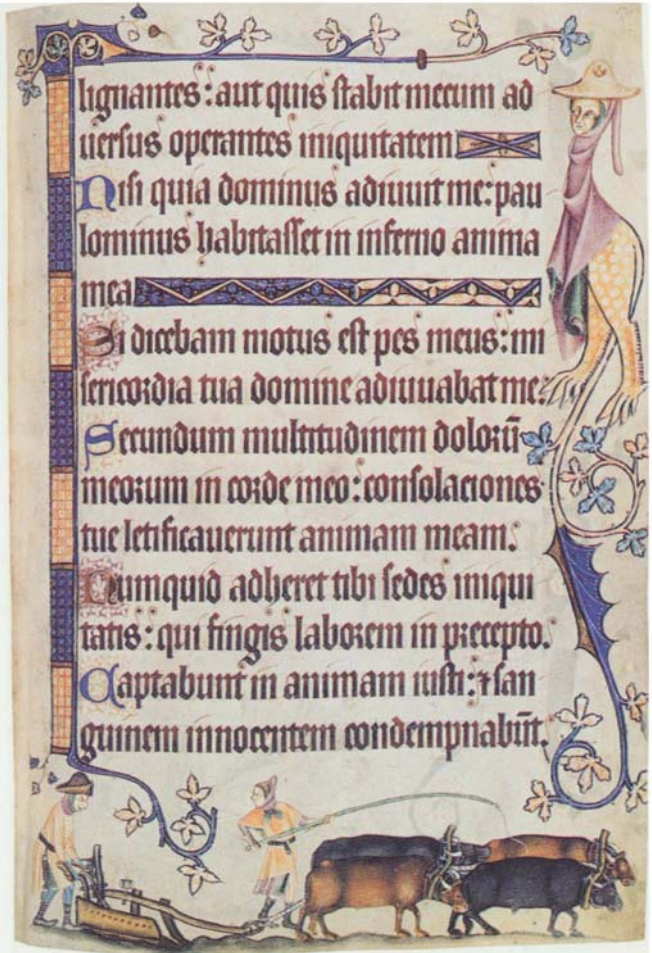 lignantes: aut quis stabit mecum ad
uersus operantes iniquitatem
Nisi quia dominus adiuuit me: pau
lominus habitasset in inferno anima
mea
Si dicebam motus est pes meus: mi
sericordia tua domine adiuuabat me:
Secundum multitudinem dolorū
meorum in corde meo: consolaciones
tue letificauerunt animam meam.
Numquid adheret tibi sedes iniqui
tatis: qui fingis laborem in precepto.
Captabunt in animam iusti: ⁊ san
guinem innocentem condempnabūt.